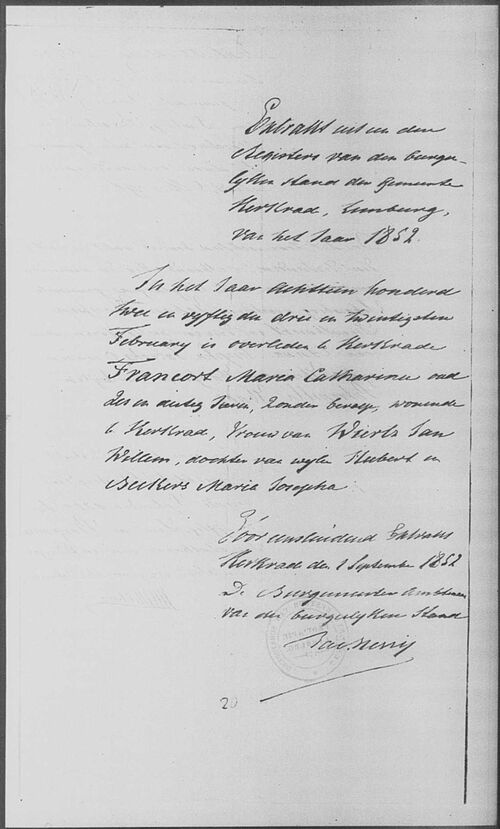 Extrakt uit een den
Registers van den burger-
lyken stand der gemeente
Kerkrad, Limburg,
van het Jaar 1852.
In het Jaar achttien honderd
twee en vyftig den drie en twintigsten
February is overleden te Kerkrade
Francort Maria Catharina oud
zes en dertig Jaren, zonder beroep, wonende
te Kerkrad, Vrouw van Wierts Jan
Willem, dochter van wylen Hubert en
Beckers Maria Josepha
Voor eensluidend Extrakt
Kerkrade den 1 September 1852
De Burgemeester Ambtenaar
van den burgerlyken Stand
20